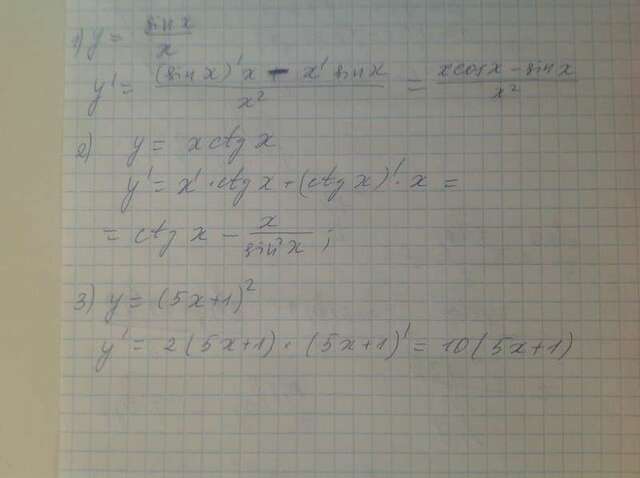 1) y = sin x / x
y' = ((sin x)' x - x' sin x) / x² = (x cos x - sin x) / x²
2) y = x ctg x
y' = x' · ctg x + (ctg x)' · x =
= ctg x - x / sin² x ;
3) y = (5x+1)²
y' = 2(5x+1) · (5x+1)' = 10(5x+1)